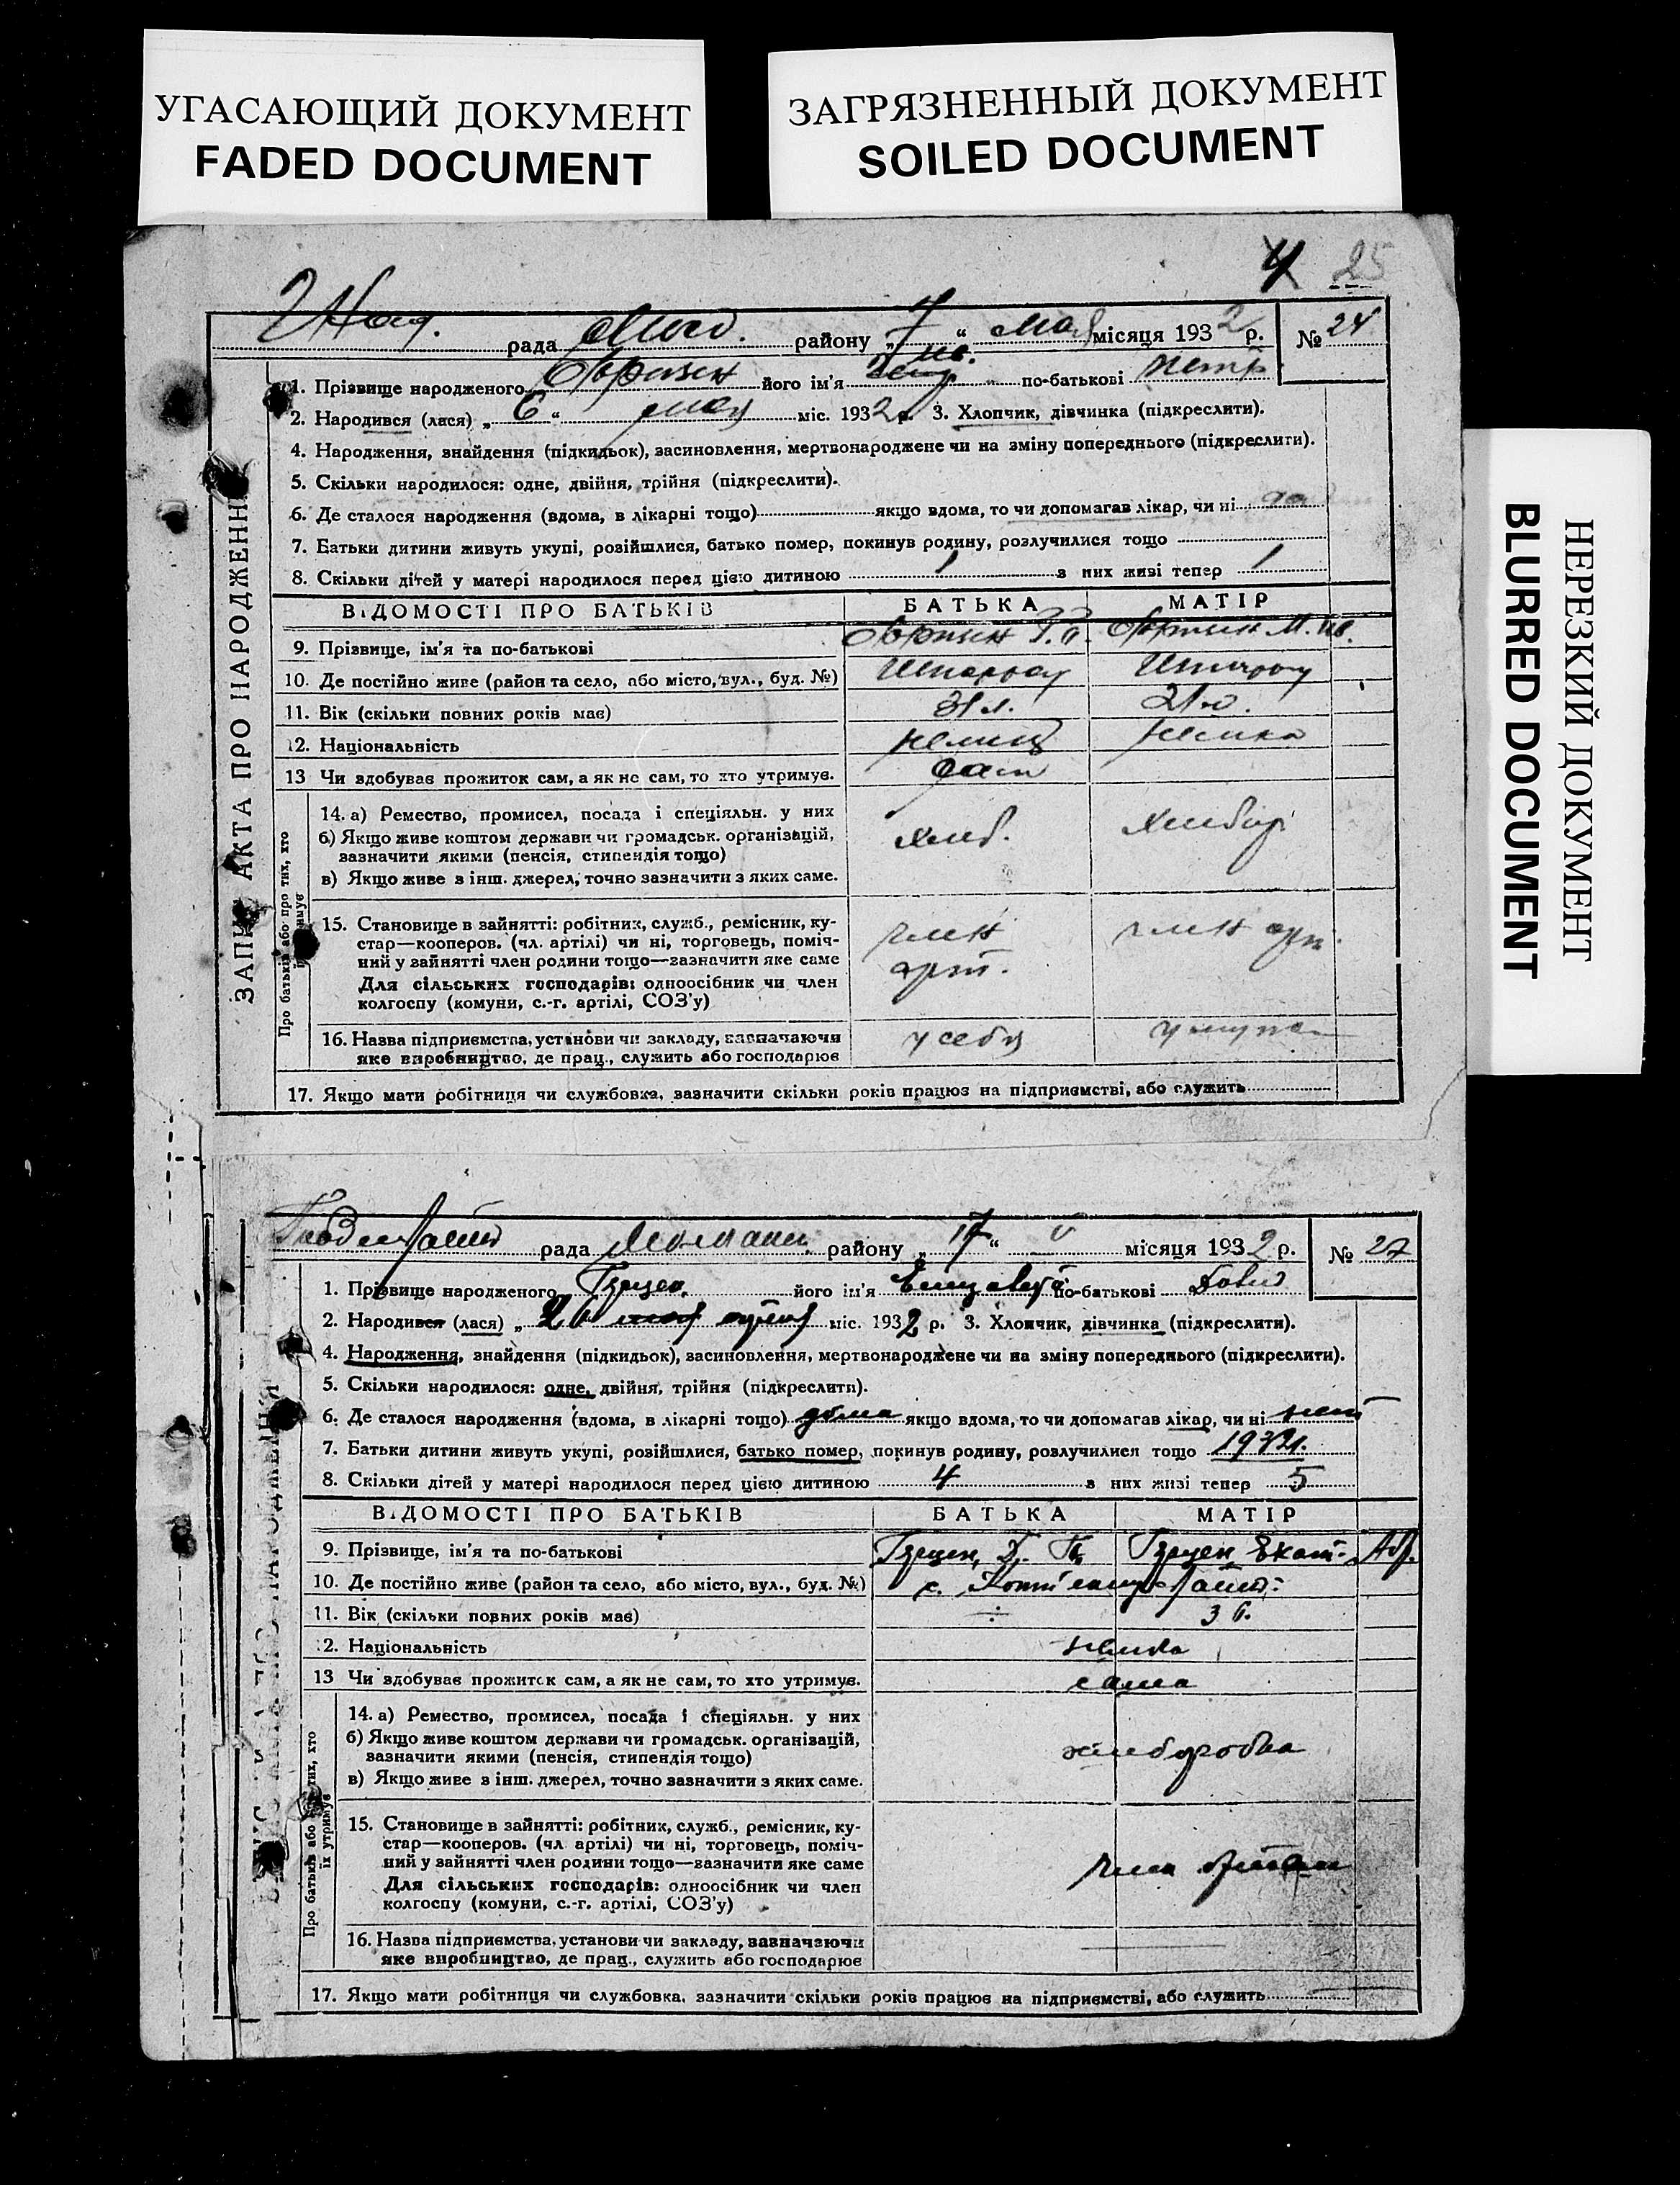 УГАСАЮЩИЙ ДОКУМЕНТ
FADED DOCUMENT
ЗАГРЯЗНЕННЫЙ ДОКУМЕНТ
SOILED DOCUMENT
НЕРЕЗКИЙ ДОКУМЕНТ
BLURRED DOCUMENT
4 25
рада району „7“ мая місяця 1932 р. № 24
ЗАПИС АКТА ПРО НАРОДЖЕННЯ
1. Прізвище народженого його ім'я по-батькові Петр.
2. Народився (лася) „6“ мая міс. 1932 р. 3. Хлопчик, дівчинка (підкреслити).
4. Народження, знайдення (підкидьок), засиновлення, мертвонароджене чи на зміну попереднього (підкреслити).
5. Скільки народилося: одне, двійня, трійня (підкреслити).
6. Де сталося народження (вдома, в лікарні тощо) якщо вдома, то чи допомагав лікар, чи ні да
7. Батьки дитини живуть укупі, розійшлися, батько помер, покинув родину, розлучилися тощо
8. Скільки дітей у матері народилося перед цією дитиною 1 з них живі тепер 1
ВІДОМОСТІ ПРО БАТЬКІВ БАТЬКА МАТІР
9. Прізвище, ім'я та по-батькові
10. Де постійно живе (район та село, або місто, вул., буд. №)
11. Вік (скільки повних років має) 31 л. 21
12. Національність немец немка
13 Чи здобуває прожиток сам, а як не сам, то хто утримує. сам
Про батьків або про тих, хто їх утримує
14. а) Ремество, промисел, посада і спеціяльн. у них
б) Якщо живе коштом держави чи громадськ. організацій,
зазначити якими (пенсія, стипендія тощо)
в) Якщо живе з інш. джерел, точно зазначити з яких саме.
хлеб. хлебор
15. Становище в зайнятті: робітник, служб., ремісник, ку-
стар—кооперов. (чл. артілі) чи ні, торговець, поміч-
ний у зайнятті член родини тощо—зазначити яке саме
Для сільських господарів: одноосібник чи член
колгоспу (комуни, с.-г. артілі, СОЗ'у)
член арт. член
16. Назва підприємства, установи чи закладу, зазначаючи
яке виробництво, де прац., служить або господарює
у себя у мужа
17. Якщо мати робітниця чи службовка, зазначити скільки років працює на підприємстві, або служить
рада району „17“ V місяця 1932 р. № 27
1. Прізвище народженого його ім'я Елизавета по-батькові Давид
2. Народився (лася) „26 міс. 1932 р. 3. Хлопчик, дівчинка (підкреслити).
4. Народження, знайдення (підкидьок), засиновлення, мертвонароджене чи на зміну попереднього (підкреслити).
5. Скільки народилося: одне, двійня, трійня (підкреслити).
6. Де сталося народження (вдома, в лікарні тощо) дома якщо вдома, то чи допомагав лікар, чи ні нет
7. Батьки дитини живуть укупі, розійшлися, батько помер, покинув родину, розлучилися тощо 1932г.
8. Скільки дітей у матері народилося перед цією дитиною 4 з них живі тепер 5
ВІДОМОСТІ ПРО БАТЬКІВ БАТЬКА МАТІР
9. Прізвище, ім'я та по-батькові Екат. Абр.
10. Де постійно живе (район та село, або місто, вул., буд. №)
11. Вік (скільки повних років має) 36.
12. Національність немка
13 Чи здобуває прожиток сам, а як не сам, то хто утримує. сама
Про батьків або про тих, хто їх утримує
14. а) Ремество, промисел, посада і спеціяльн. у них
б) Якщо живе коштом держави чи громадськ. організацій,
зазначити якими (пенсія, стипендія тощо)
в) Якщо живе з інш. джерел, точно зазначити з яких саме.
15. Становище в зайнятті: робітник, служб., ремісник, ку-
стар—кооперов. (чл. артілі) чи ні, торговець, поміч-
ний у зайнятті член родини тощо—зазначити яке саме
Для сільських господарів: одноосібник чи член
колгоспу (комуни, с.-г. артілі, СОЗ'у)
член
16. Назва підприємства, установи чи закладу, зазначаючи
яке виробництво, де прац., служить або господарює
17. Якщо мати робітниця чи службовка, зазначити скільки років працює на підприємстві, або служить